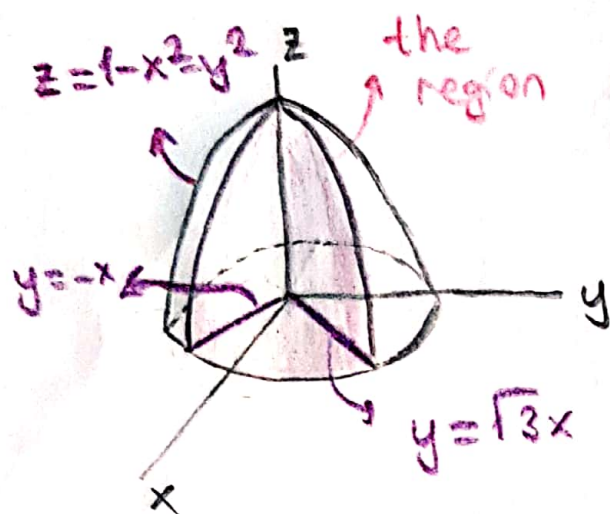 z=1-x²-y²
z
the
region
y=-x
y
y=√3x
x